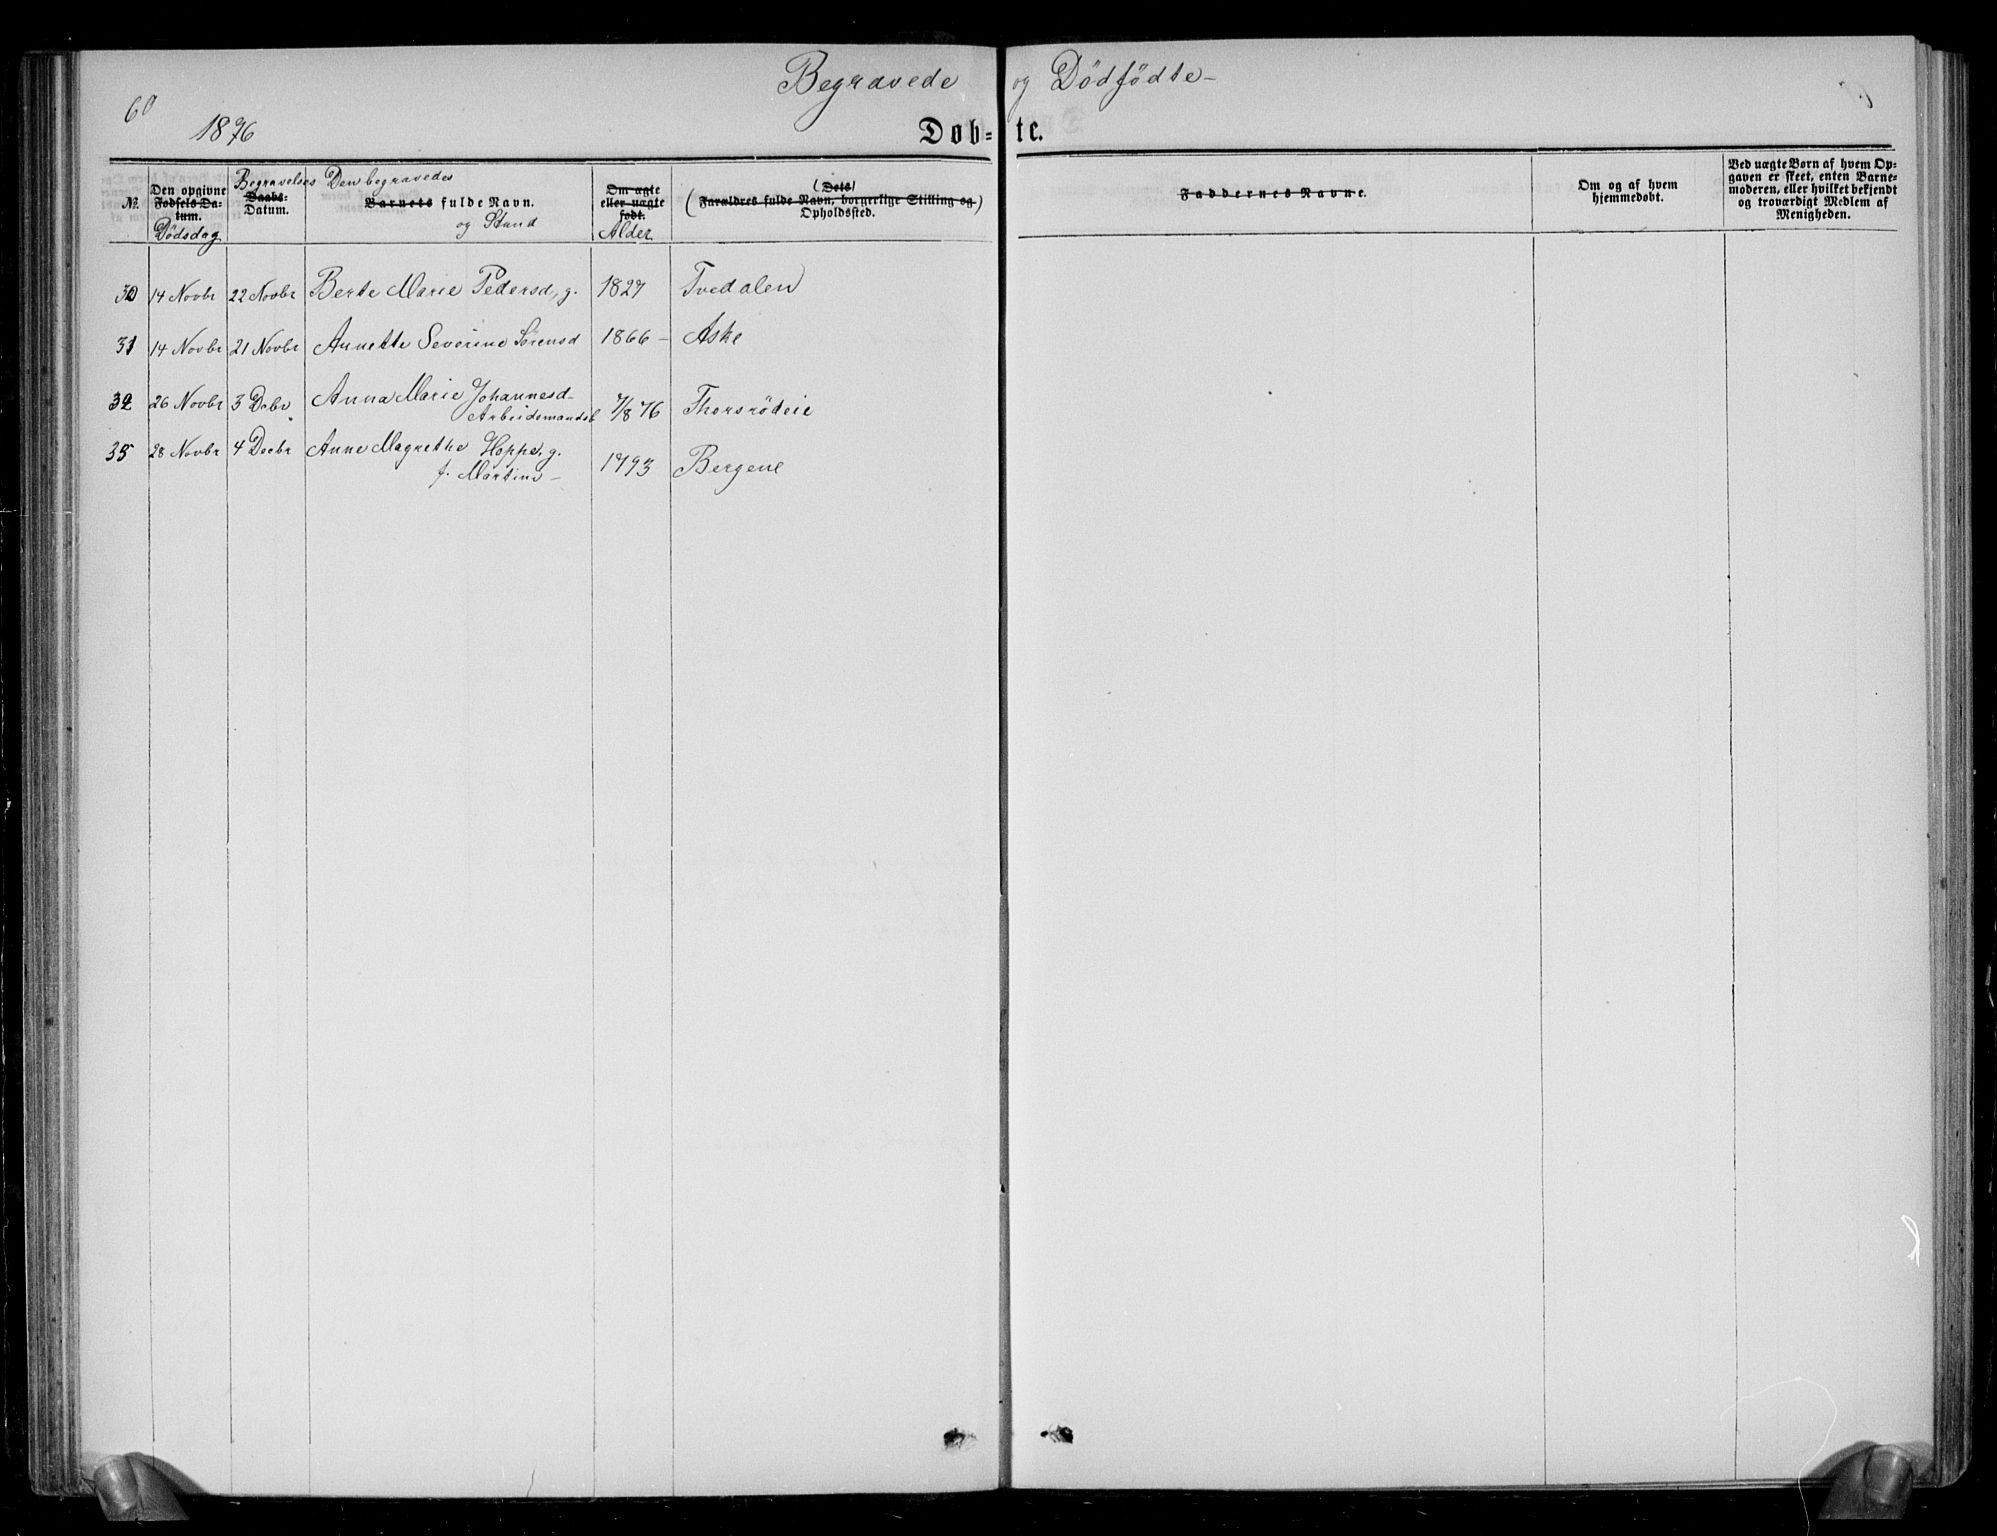 Begravede og Dödfödte-
60
1876
Døb- te.
№.
Den opgivne
Fødsels Da-
tum.
Dödsdag
Begravelses
Daabs-
Datum.
Den begravedes
Barnets fulde Navn.
og Stand
Om ægte
eller uægte
født.
Alder
(Dets)
(Forældres fulde Navn, borgerlige Stilling og)
Opholdssted.
Faddernes Navne.
Om og af hvem
hjemmedøbt.
Ved uægte Børn af hvem Op-
gaven er skeet, enten Barne-
moderen, eller hvilket bekjendt
og troværdigt Medlem af
Menigheden.
30 14 Novbr 22 Novbr Berte Marie Pedersd, g. 1827 Tvedalen
31 14 Novbr 21 Novbr Annette Severine Sörensd 1866 - Aske
32 26 Novbr 3 Debr Anna Marie Johannesd-
Arbeidsmandsb 7/8 76 Thorsrödeie
35 28 Novbr 4 Decbr Anne Magrethe Hoppe, g.
f. Martine - 1793 Bergene